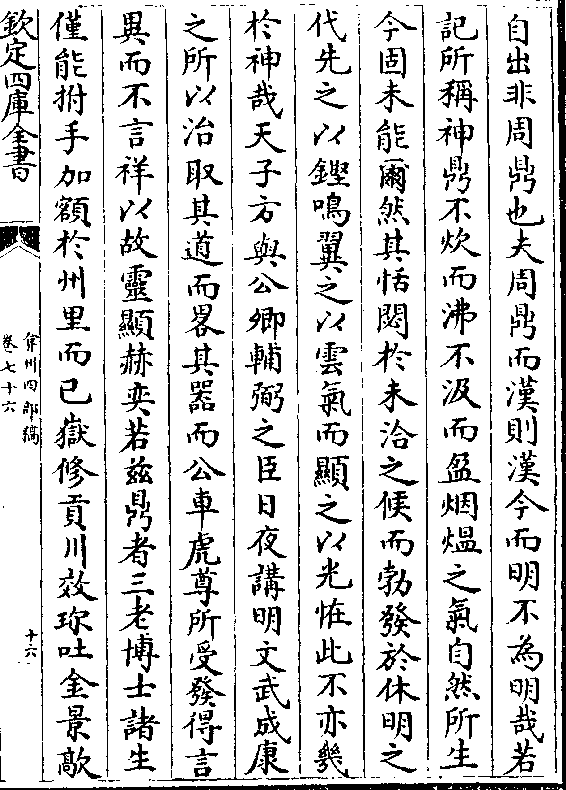 自出非周鼎也夫周鼎而漢則漢今而明不為明哉若
記所稱神鼎不炊而沸不汲而盈烟熅之氣自然所生
今固未能爾然其恬閟於未洽之候而勃發於休明之
代先之以鏗鳴翼之以雲氣而顯之以光恠此不亦幾
於神哉天子方與公卿輔弼之臣日夜講明文武成康
之所以治取其道而畧其器而公車虎尊所受發得言
異而不言祥以故靈顯赫奕若兹鼎者三老博士諸生
僅能拊手加額於州里而已嶽修貢川效珎吐金景歊
欽定四庫全書
弇州四部稿
卷七十六
十六